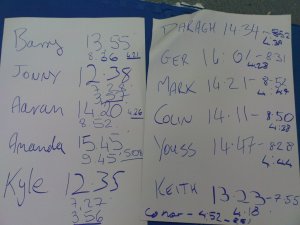 Barry 13.55
8.36 4.21
JONNY 12.38
7.28
3.57
Aaran 14.20 4.26
8.52
Amanda 15.45
9.45 5.08
Kyle 12.35
7.27
3.56
DARAGH 14.34 - 8.52
4.39
GER 14.01 - 8.31
4.23
MARK 14.21 - 8.52
COLIN 14.11 - 8.50
4.28
YOUSS 14.47 - 8.28
4.44
KEITH 13.23 - 7.55
4.13
Conor - 4.52 -